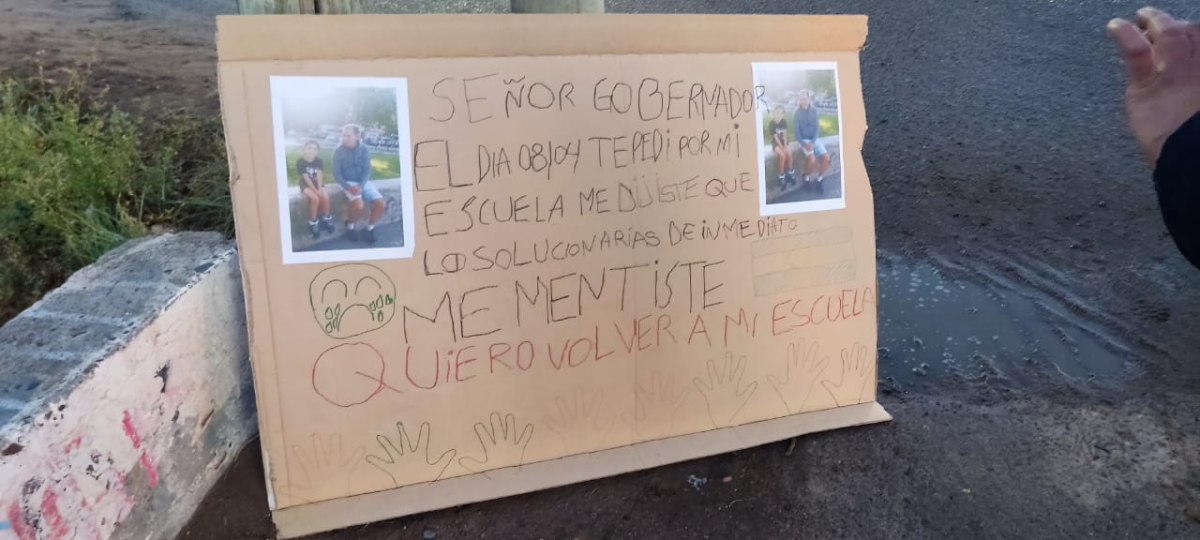 SEÑOR GOBERNADOR
EL DIA 08/04 TE PEDI POR MI
ESCUELA ME DIJISTE QUE
LO SOLUCIONARIAS DE INMEDIATO
ME MENTISTE
QUIERO VOLVER A MI ESCUELA